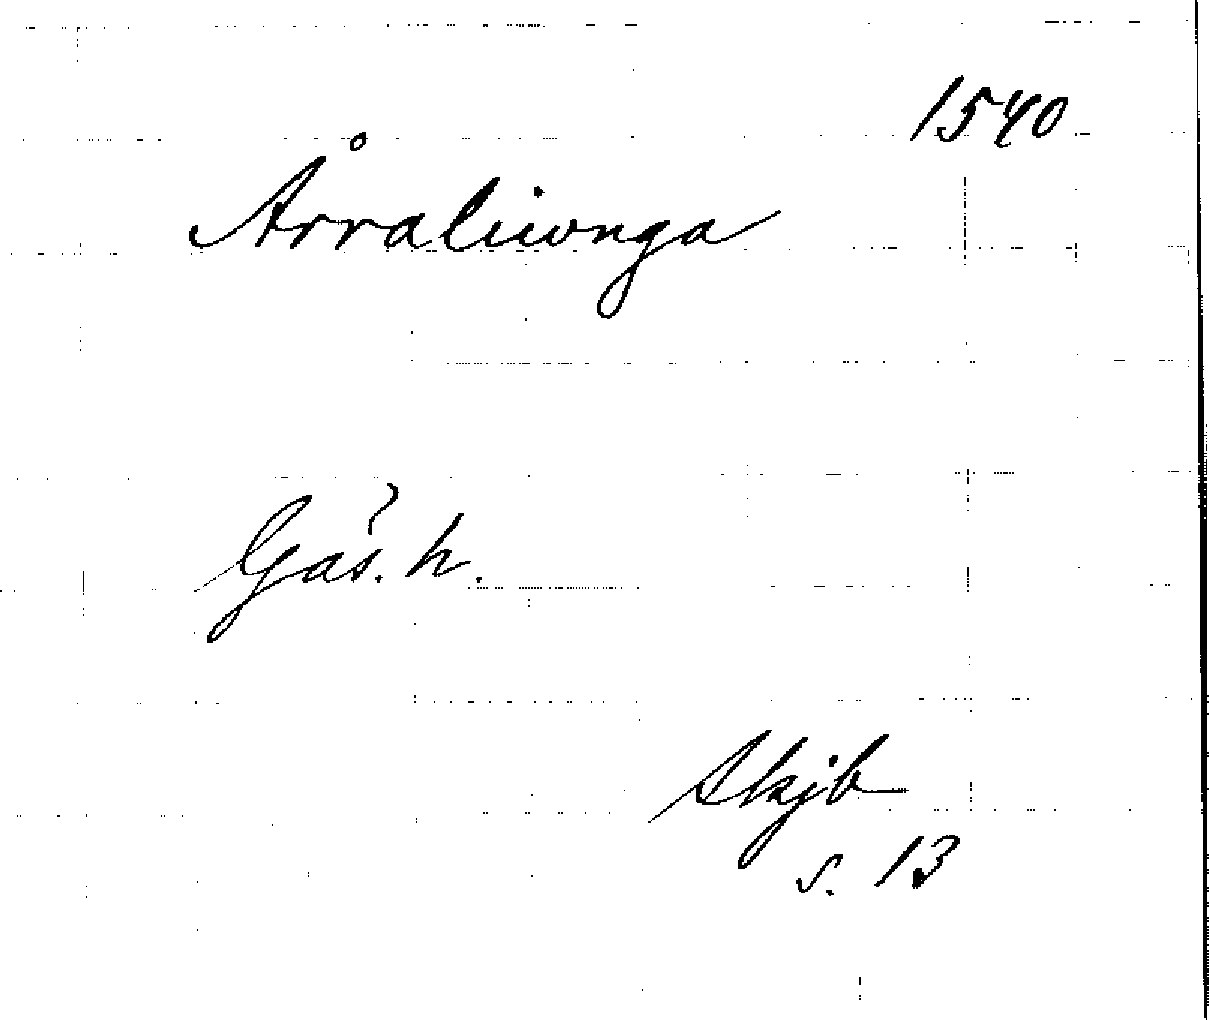 1540
Årraliwonga
Gäs. h.
Skjb
s. 13